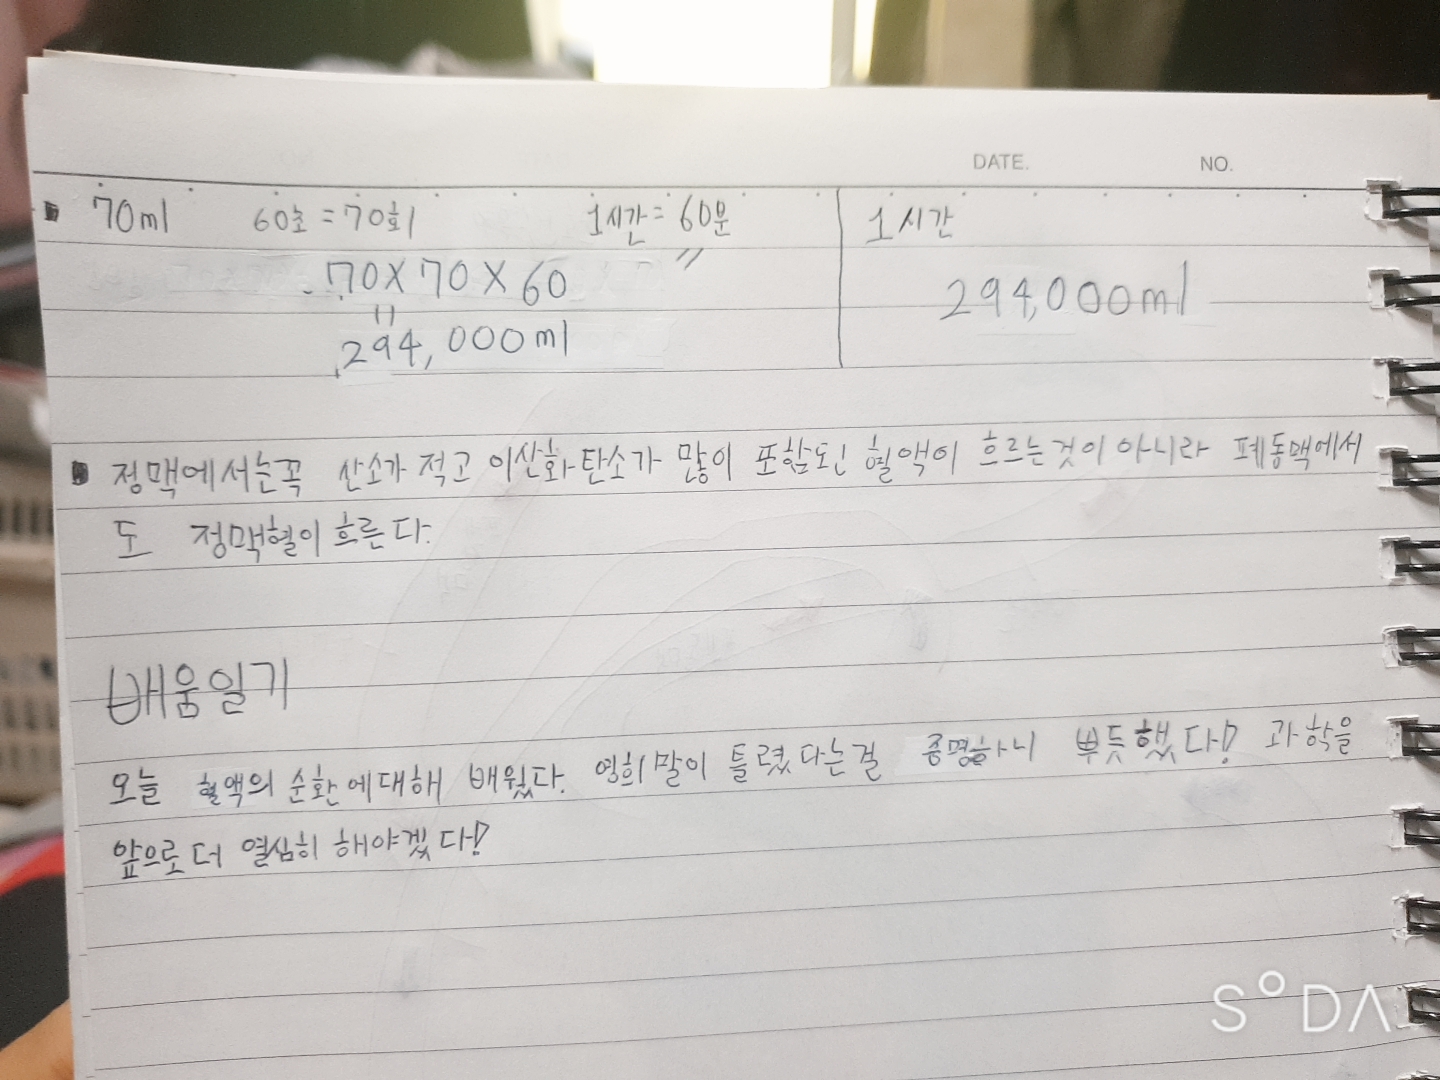 DATE. NO.
70ml 60초 = 70회 1시간 = 60분 1시간
70 X 70 X 60
294,000ml
294,000ml
정맥에서는꼭 산소가 적고 이산화탄소가 많이 포함된 혈액이 흐르는것이 아니라 폐동맥에서
도 정맥혈이 흐른다.
배움일기
오늘 혈액의 순환에대해 배웠다. 영희말이 틀렸다는걸 증명하니 뿌듯했다! 과학을
앞으로 더 열심히 해야겠다!
SODA